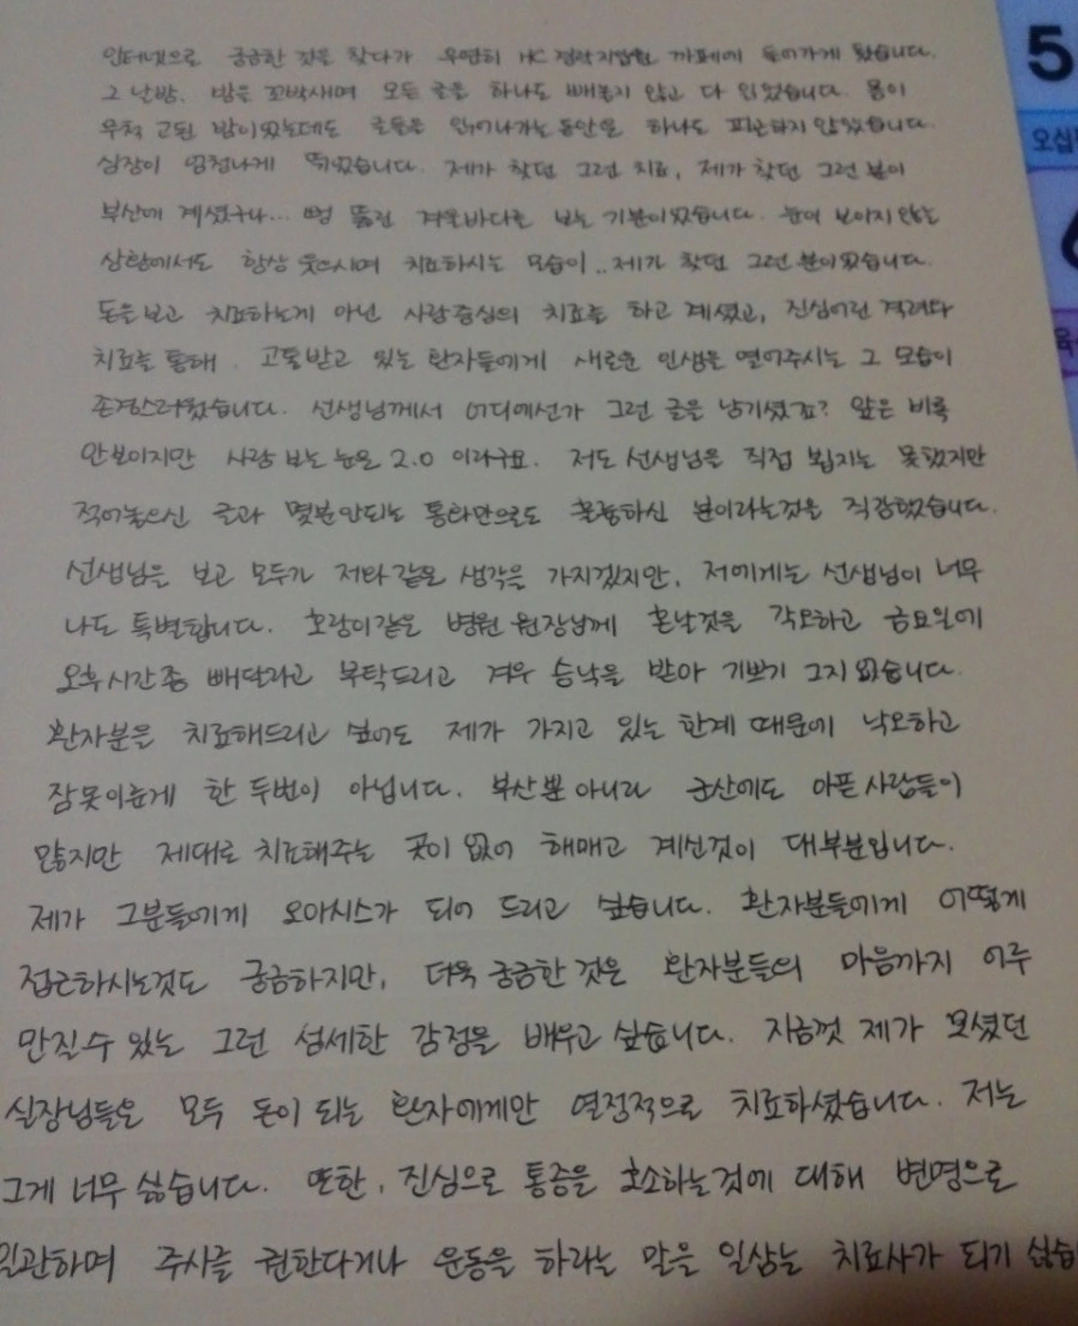 인터넷으로 궁금한 것을 찾다가 우연히 HC 점락지압원 까페에 들어가게 됐습니다.
그 날밤, 밤을 꼬박새며 모든 글을 하나도 빼놓지 않고 다 읽었습니다. 몸이
무척 고된 밤이었는데도 글들을 읽어나가는 동안은 하나도 피곤하지 않았습니다.
심장이 엄청나게 뛰었습니다. 제가 찾던 그런 치료, 제가 찾던 그런 분이
부산에 계셨구나... 뻥 뚫린 겨울바다를 보는 기분이었습니다. 눈이 보이지 않는
상황에서도 항상 웃으시며 치료하시는 모습이.. 제가 찾던 그런 분이었습니다.
돈을 보고 치료하는게 아닌 사람중심의 치료를 하고 계셨고, 진심어린 격려와
치료를 통해. 고통받고 있는 환자들에게 새로운 인생을 열어주시는 그 모습이
존경스러웠습니다. 선생님께서 어디에선가 그런 글을 남기셨죠? 앞은 비록
안보이지만 사람 보는 눈은 2.0 이라구요. 저도 선생님을 직접 뵙지는 못했지만
적어놓으신 글과 몇분안되는 통화만으로도 훌륭하신 분이라는것을 직감했습니다.
선생님을 보고 모두가 저와 같은 생각을 가지겠지만, 저에게는 선생님이 너무
나도 특별합니다. 호랑이같은 병원 원장님께 혼날것을 각오하고 금요일에
오후시간좀 빼달라고 부탁드리고 겨우 승낙을 받아 기쁘기 그지 없습니다.
환자분을 치료해드리고 싶어도 제가 가지고 있는 한계 때문에 낙오하고
잠못이룬게 한 두번이 아닙니다. 부산뿐 아니라 군산에도 아픈 사람들이
많지만 제대로 치료해주는 곳이 없어 해매고 계신것이 대부분입니다.
제가 그분들에게 오아시스가 되어 드리고 싶습니다. 환자분들에게 어떻게
접근하시는것도 궁금하지만, 더욱 궁금한 것은 환자분들의 마음까지 어루
만질수 있는 그런 섬세한 감정을 배우고 싶습니다. 지금껏 제가 모셨던
실장님들은 모두 돈이 되는 환자에게만 열정적으로 치료하셨습니다. 저는
그게 너무 싫습니다. 또한, 진심으로 통증을 호소하는것에 대해 변명으로
일관하며 주사를 권한다거나 운동을 하라는 말을 일삼는 치료사가 되기 싫습
5
오십